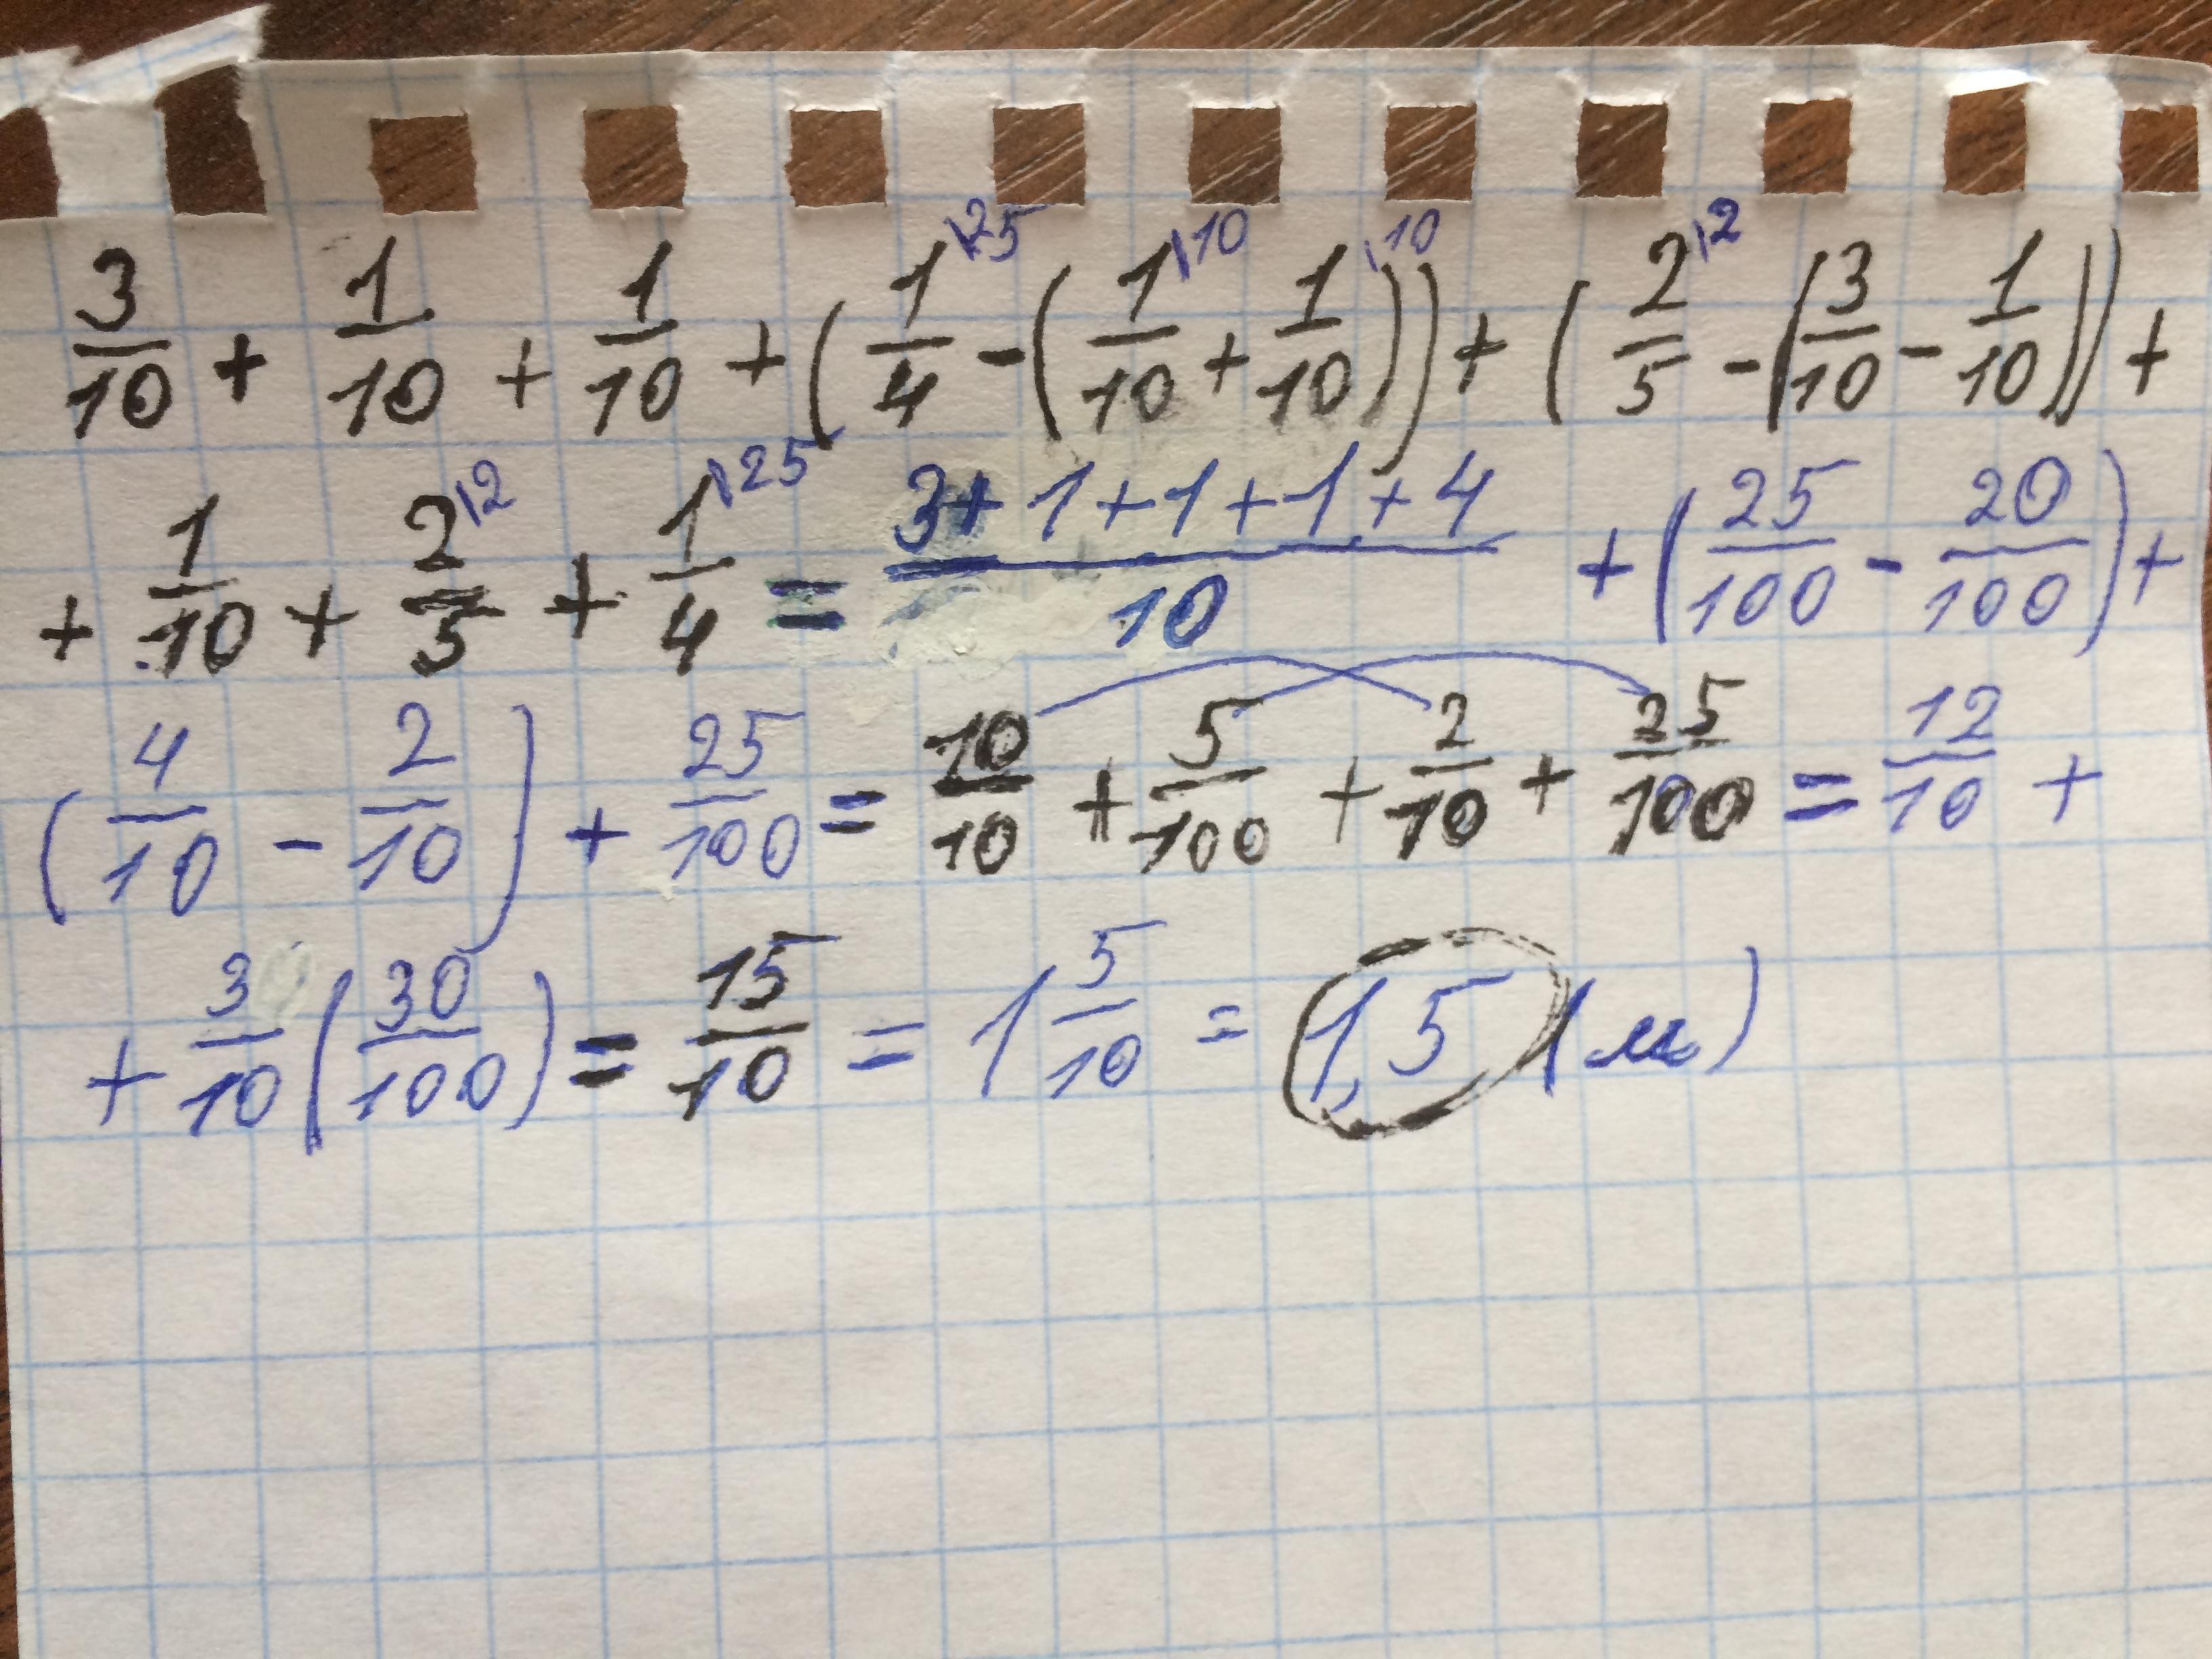 3/10 + 1/10 + 1/10 + (1\25/4 - (1\10/10 + 1\10/10)) + (2\2/5 - (3/10 - 1/10)) +
+ 1/10 + 2\2/5 + 1\25/4 = (3+1+1+1+4)/10 + (25/100 - 20/100) +
(4/10 - 2/10) + 25/100 = 10/10 + 5/100 + 2/10 + 25/100 = 12/10 +
+ 3/10 (30/100) = 15/10 = 1 5/10 = 1,5 (м)